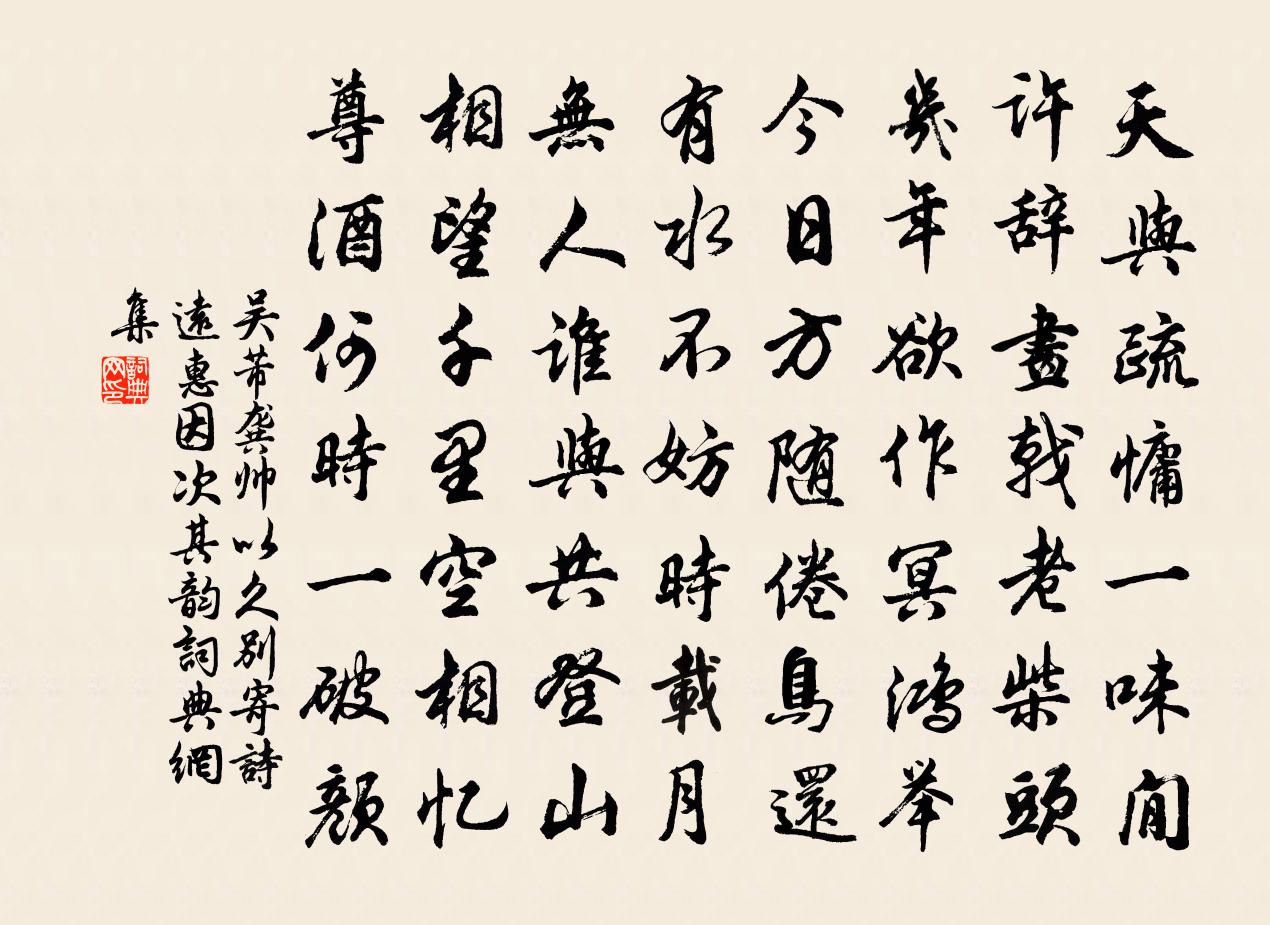 天與疏慵一味閒
許辞畫戟老柴頭
幾年欲作冥鴻举
今日方随倦鳥還
有水不妨時載月
無人誰與共登山
相望千里空相忆
尊酒何時一破顏
吴芾龚帅以久别寄詩
遠惠因次其韵詞典網
集
詞典
网印